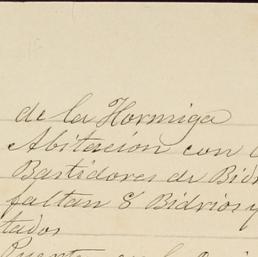 de la Hormiga
Abitación con
Bastidores de Bid
faltan 8 Bidrios y
tados
Puerta